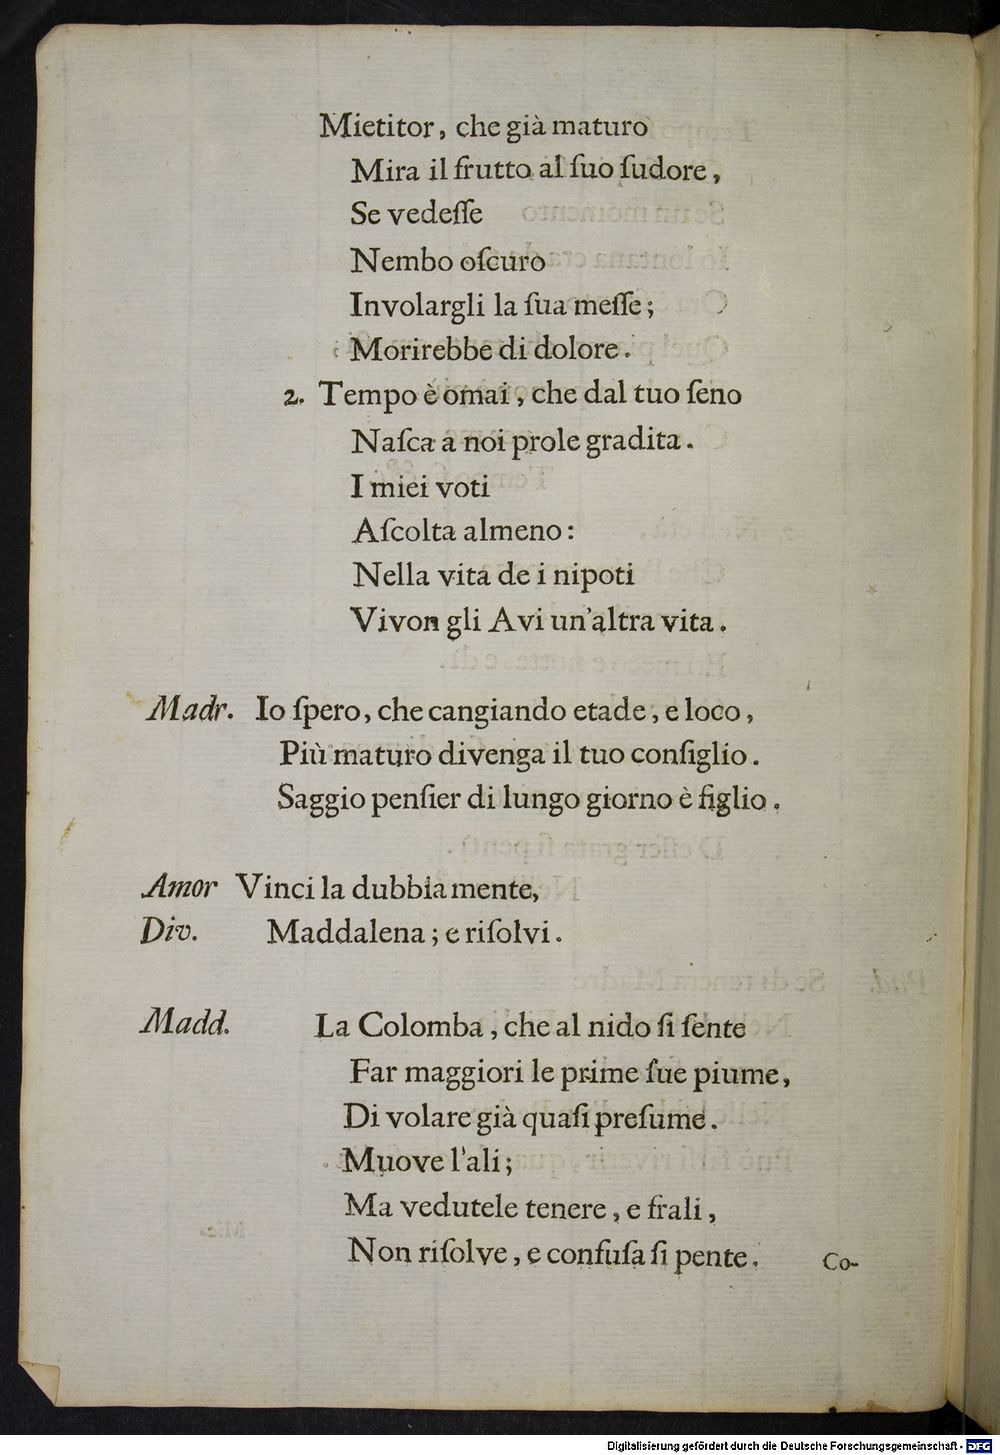 Mietitor, che già maturo
Mira il frutto al ſuo ſudore,
Se vedeſſe
Nembo oſcuro
Involargli la ſua meſſe;
Morirebbe di dolore.
2. Tempo è omai, che dal tuo ſeno
Naſca a noi prole gradita.
I miei voti
Aſcolta almeno:
Nella vita de i nipoti
Vivon gli Avi un'altra vita.
Madr. Io ſpero, che cangiando etade, e loco,
Più maturo divenga il tuo conſiglio.
Saggio penſier di lungo giorno è figlio.
Amor Vinci la dubbia mente,
Div. Maddalena; e riſolvi.
Madd. La Colomba, che al nido ſi ſente
Far maggiori le prime ſue piume,
Di volare già quaſi preſume.
Muove l'ali;
Ma vedutele tenere, e frali,
Non riſolve, e confuſa ſi pente.
Co-
Digitalisierung gefördert durch die Deutsche Forschungsgemeinschaft - DFG